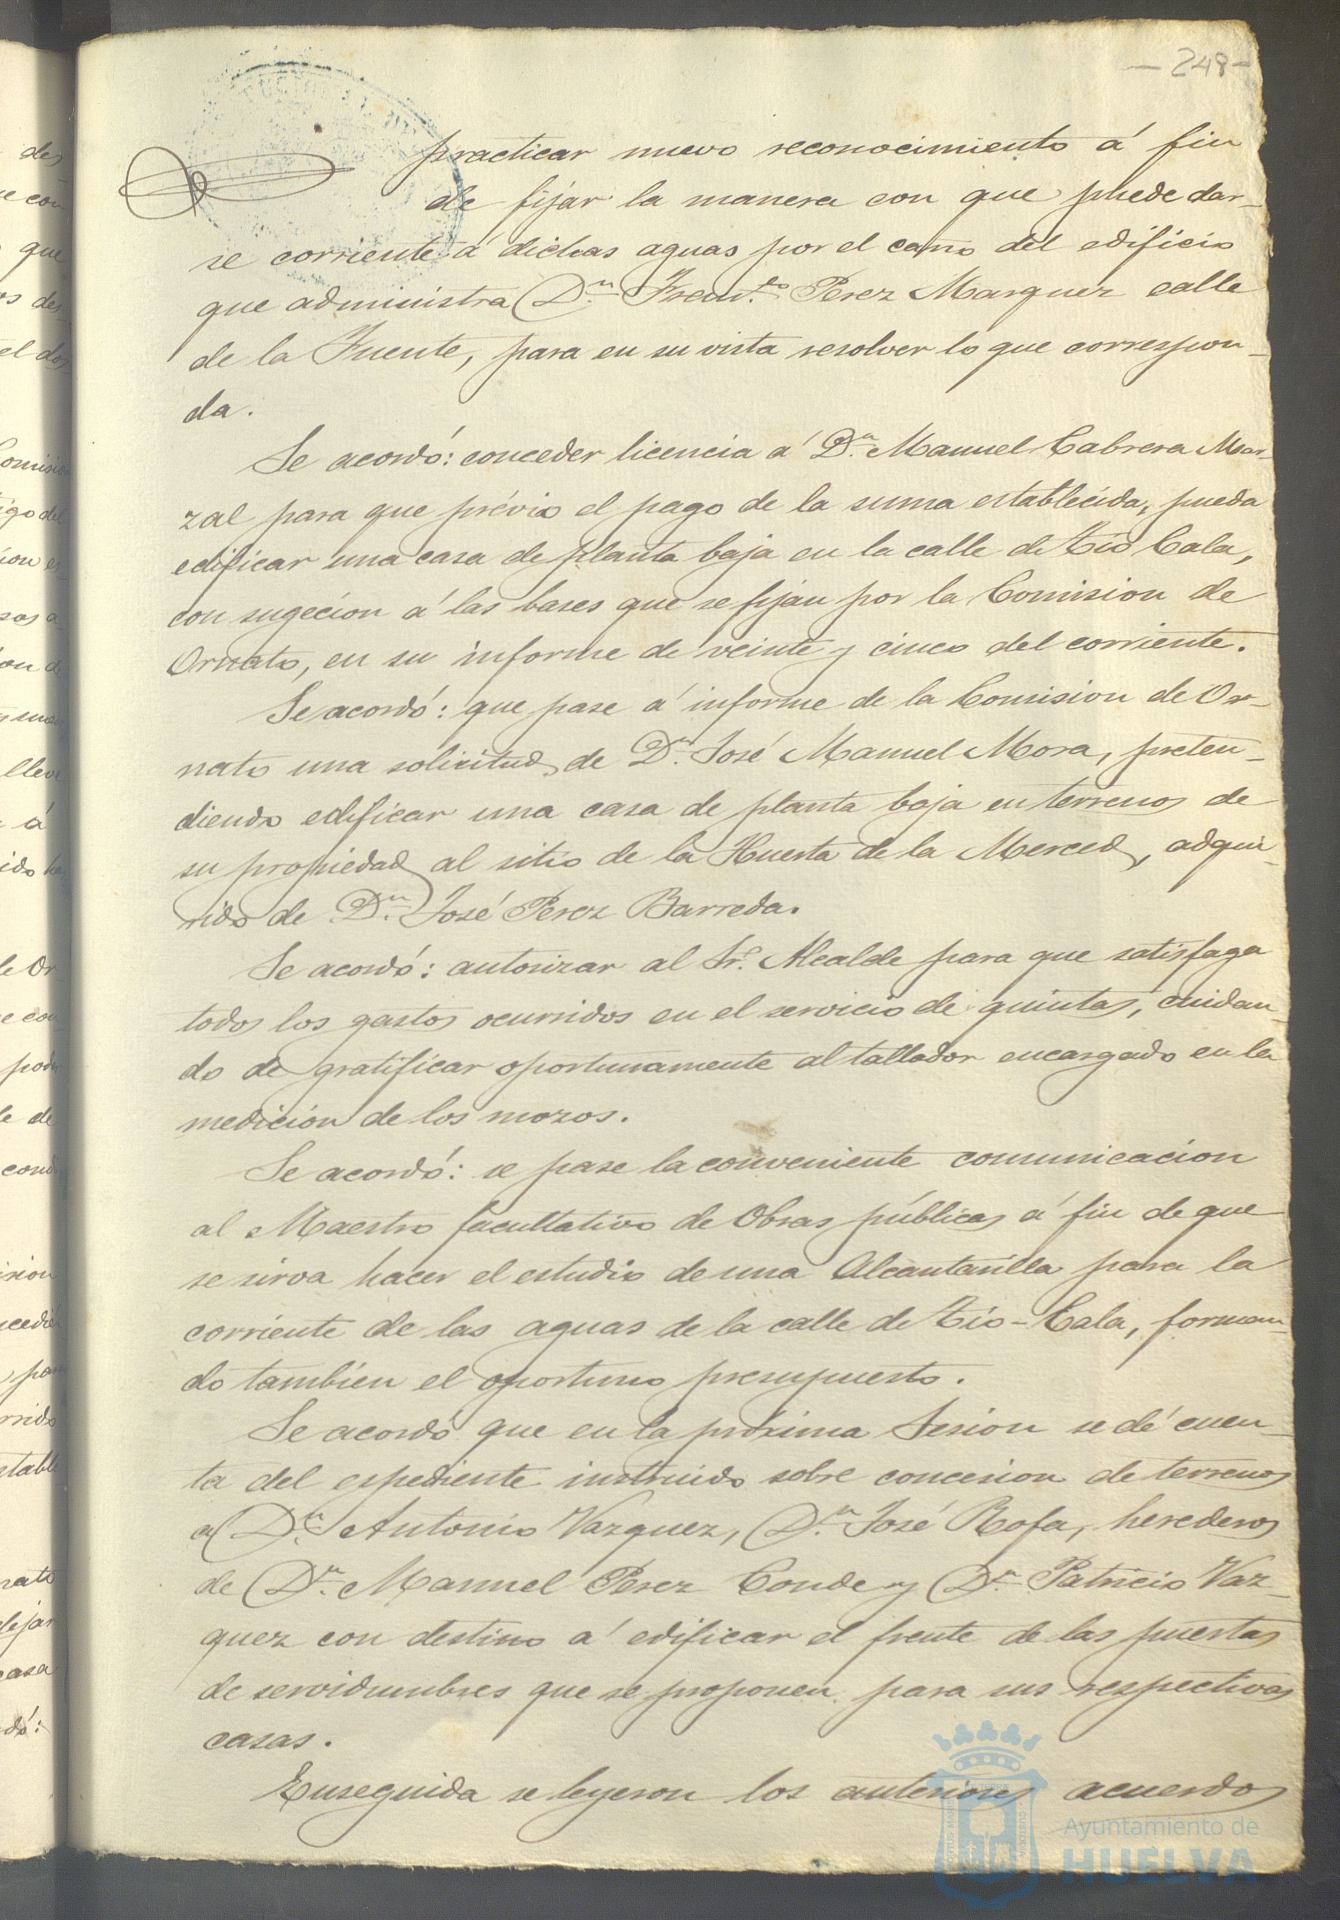 - 248 -
practicar nuevo reconocimiento á fin
de fijar la manera con que puede dar-
se corriente á dichas aguas por el caño del edificio
que administra Dn. Frew.do Perez Marquez calle
de la Fuente, para en su vista resolver lo que correspon-
da.
Se acordó: conceder licencia á Dn. Manuel Cabrera Mar-
zal para que prévio el pago de la suma establecida, pueda
edificar una casa de planta baja en la calle de Tio Cala,
con sugecion á las bases que se fijan por la Comision de
Ornato, en su informe de veinte y cinco del corriente.
Se acordó: que pase á informe de la Comision de Or-
nato una solicitud de Dn. José Manuel Mora, preten-
diendo edificar una casa de planta baja en terrenos de
su propiedad al sitio de la Huerta de la Merced, adqui-
rido de Dn. José Perez Barreda.
Se acordó: autorizar al Sr. Alcalde para que satisfaga
todos los gastos ocurridos en el servicio de quintas, cuidan-
do de gratificar oportunamente al tallador encargado en la
medicion de los mozos.
Se acordó: se pase la conveniente comunicacion
al Maestro facultativo de Obras públicas á fin de que
se sirva hacer el estudio de una Alcantarilla para la
corriente de las aguas de la calle de Tio-Cala, forman-
do tambien el oportuno presupuesto.
Se acordó que en la próxima Sesion se dé cuen-
ta del espediente instruido sobre concesion de terrenos
a Dn. Antonio Vazquez, Dn. José Rofa, herederos
de Dn. Manuel Perez Conde y Dn. Patricio Vaz-
quez con destino á edificar el frente de las puertas
de servidumbres que se proponen para sus respectivas
casas.
Enseguida se leyeron los anteriores acuerdos
Ayuntamiento de
HUELVA